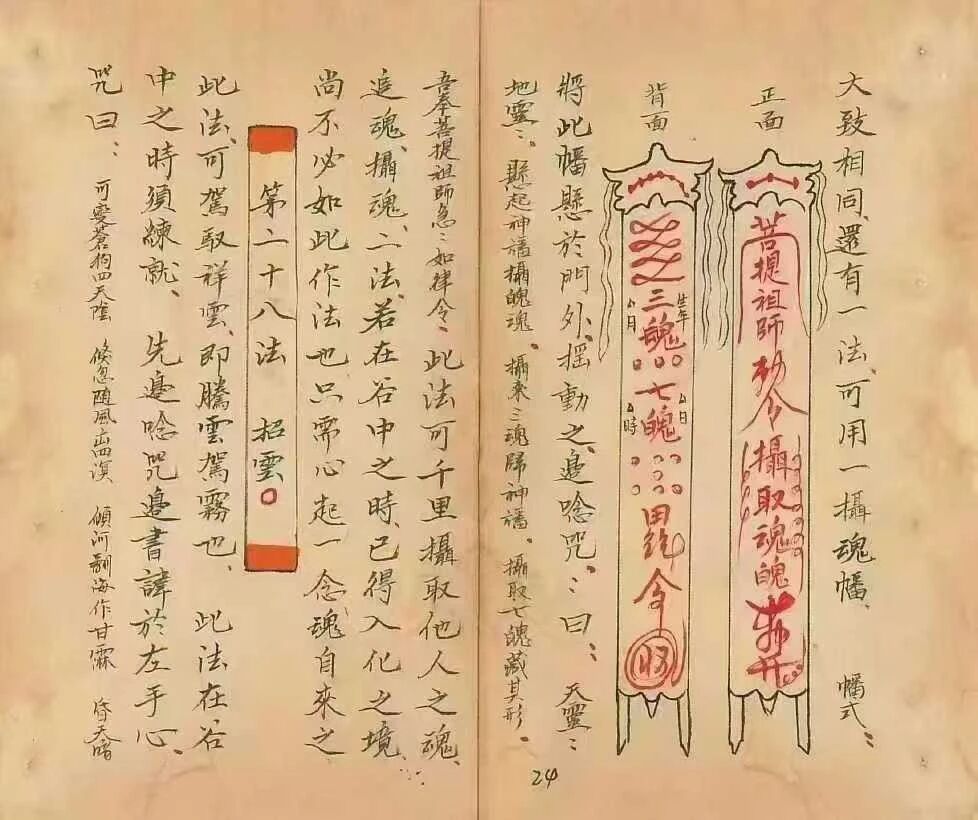 大致相同、還有一法、可用一攝魂幡、 幡式：
正面
菩提祖師勅令攝取魂魄
背面
三魄七魄
生年
月
日
時
令
收
將此幡懸於門外、搖動之、邊唸咒：曰： 天靈：
地靈： 懸起神旛攝魄魂。 攝來三魂歸神旛。 攝取七魄藏其形。
24
吾奉菩提祖師急：如律令。 此法可千里攝取他人之魂、
追魂、攝魂、二法、若在谷中之時、已得入化之境、
尚不必如此作法也、只需心起一念、魂自來之
第二十八法 招雲。
此法、可駕馭祥雲、即騰雲駕霧也、 此法在谷
中之時須練就、 先邊唸咒邊書諱於左手心、
咒曰： 可變蒼狗四天陰 倏忽隨風出 傾河翻海作甘霖 昏天